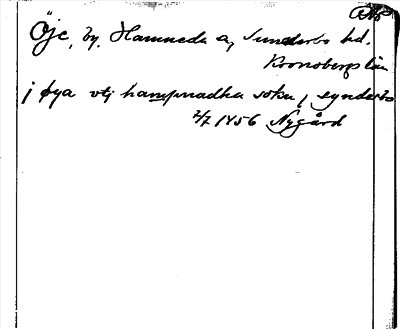 Öje, by. Hamneda s, Sunnerbo hd.
Kronobergs län
j øya vtj hampnadha sokn, synderbo
2/7 1456 Nygård